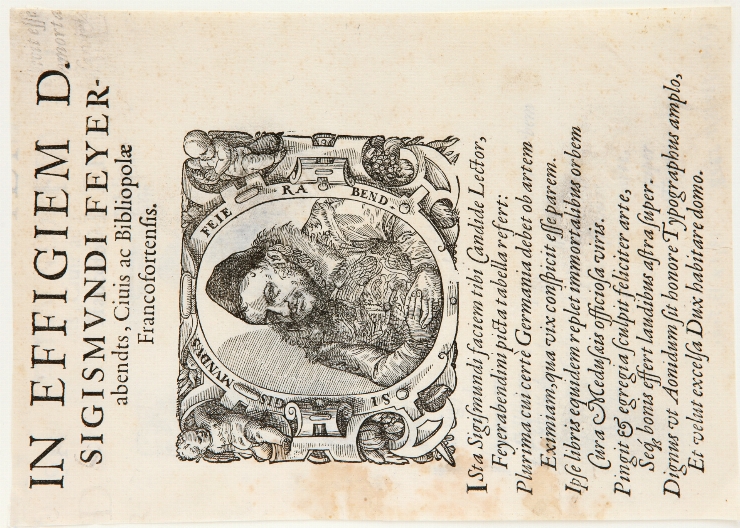 IN EFFIGIEM D.
SIGISMVNDI FEYER-
abendts, Ciuis ac Bibliopolæ
Francofortenſis.
SIGISMVNDVS FEIERABEND·
ISta Sigiſmundi faciem tibi Candide Lector,
Feyerabendini picta tabella refert:
Plurima cui certè Germania debet ob artem
Eximiam, qua vix conſpicit eſſe parem.
Ipſe libris equidem replet immortalibus orbem
Cura Meduſæis officioſa viris.
Pingit & egregia ſculpit feliciter arte,
Seq́; bonis effert laudibus aſtra ſuper.
Dignus vt Aonidum ſit honore Typographus amplo,
Et velut excelſa Dux habitare domo.